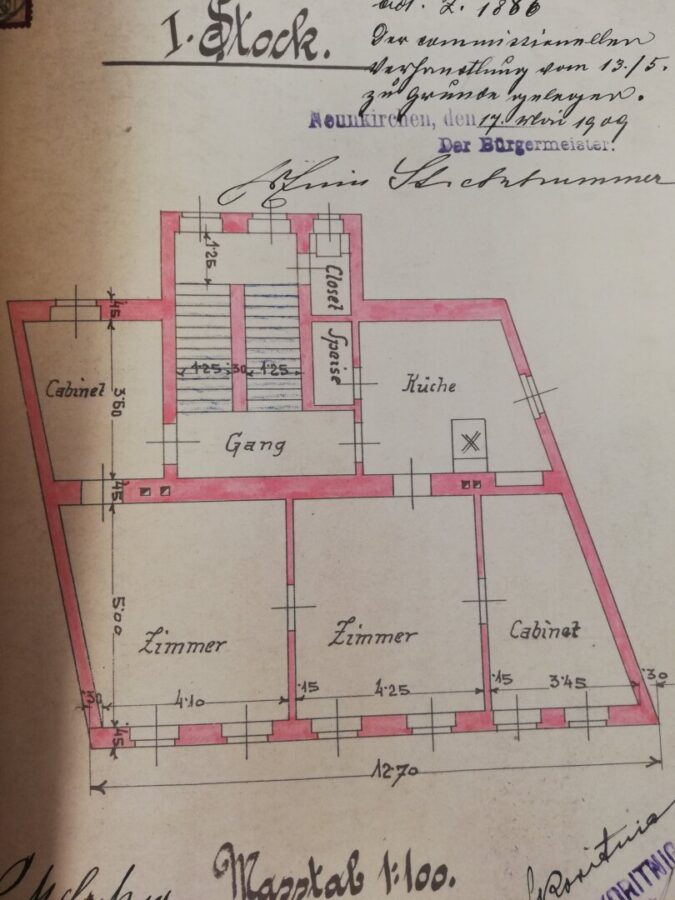 I. Stock.
Z. 1886
Der commissionellen
Verhandlung vom 13/5.
zu Grunde gelegen.
Neunkirchen, den 17. Mai 1909
Der Bürgermeister:
1·25
Closet
Speise
45
1·25 30 1·25
Cabinet
3·60
Küche
Gang
45
5·00
Zimmer
Zimmer
Cabinet
30
4·10
15
4·25
15
3·45
30
45
12·70
Masstab 1:100.